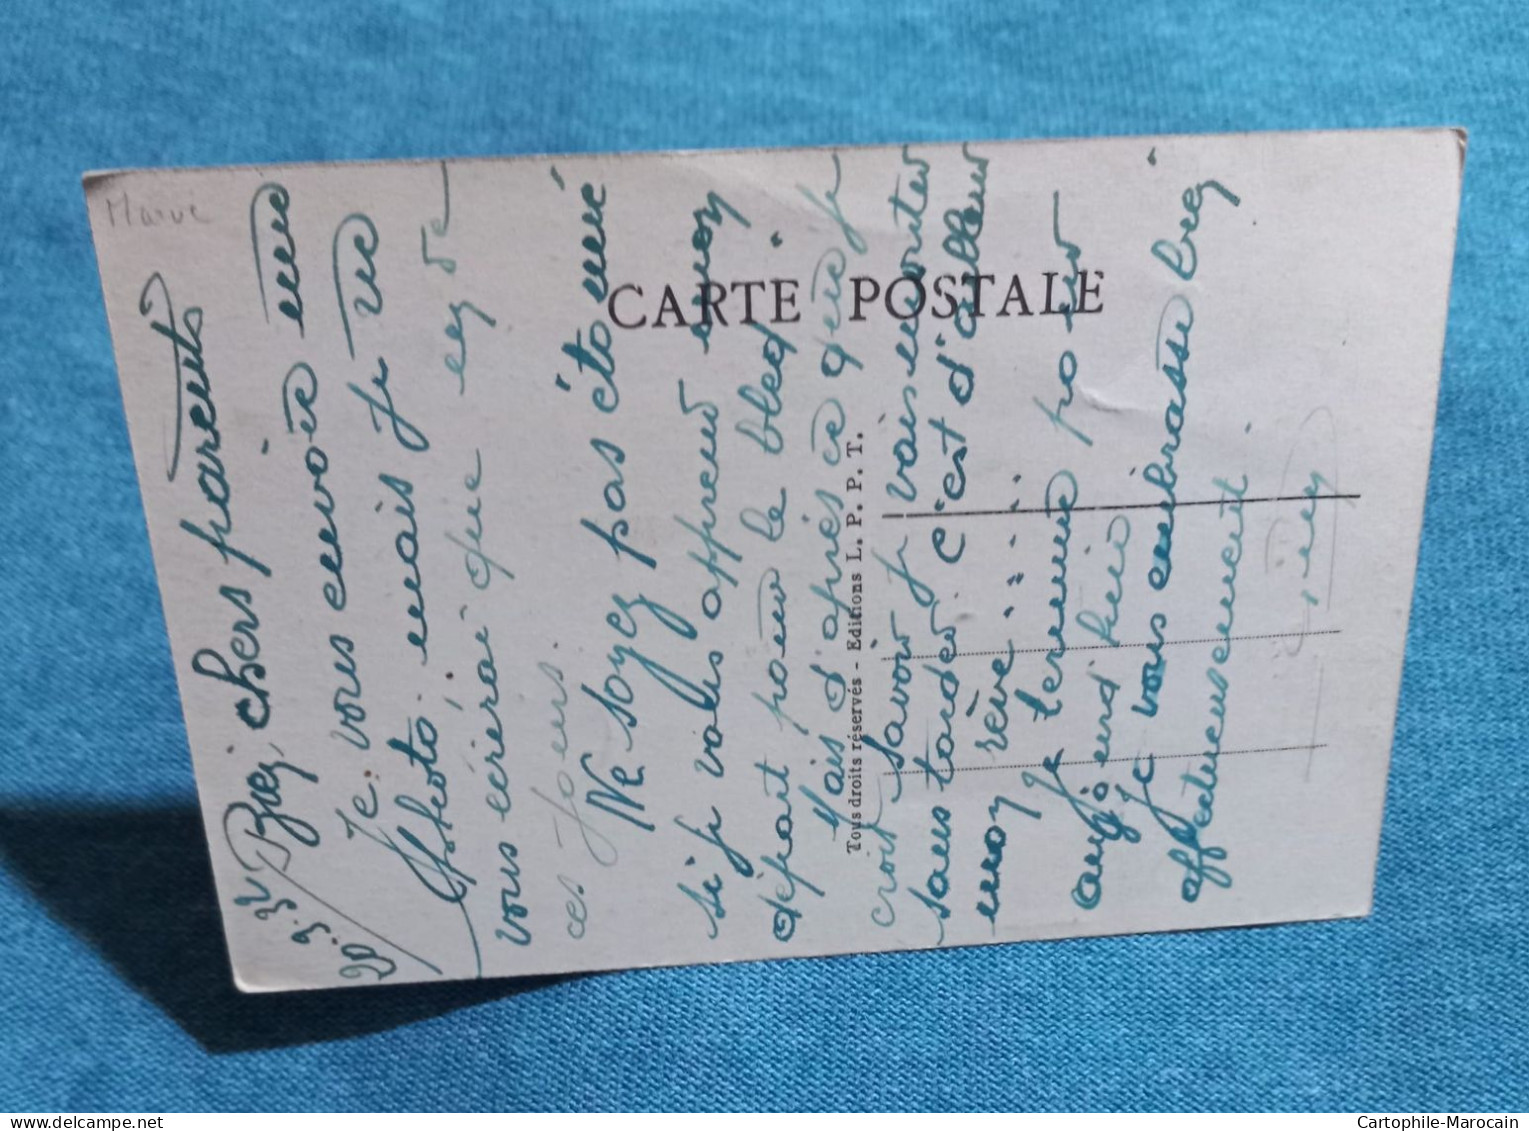 Maroc
20.3.34
Bien chers parents
Je vous envoie une
photo, mais je ne
vous écrirai que en de
ces jours.
Ne soyez pas étonné
si je voles apprend mon
départ pour le bled.
Mais d'après ce que je
crois savoir je vais monter
sans tarder. C'est d'ailleur
mon rêve .....
Je termine pour
aujourd'hui
Je vous embrasse bien
affectueusement.
CARTE POSTALE
Tous droits réservés - Editions L. P. P. T.
Cartophile-Marocain